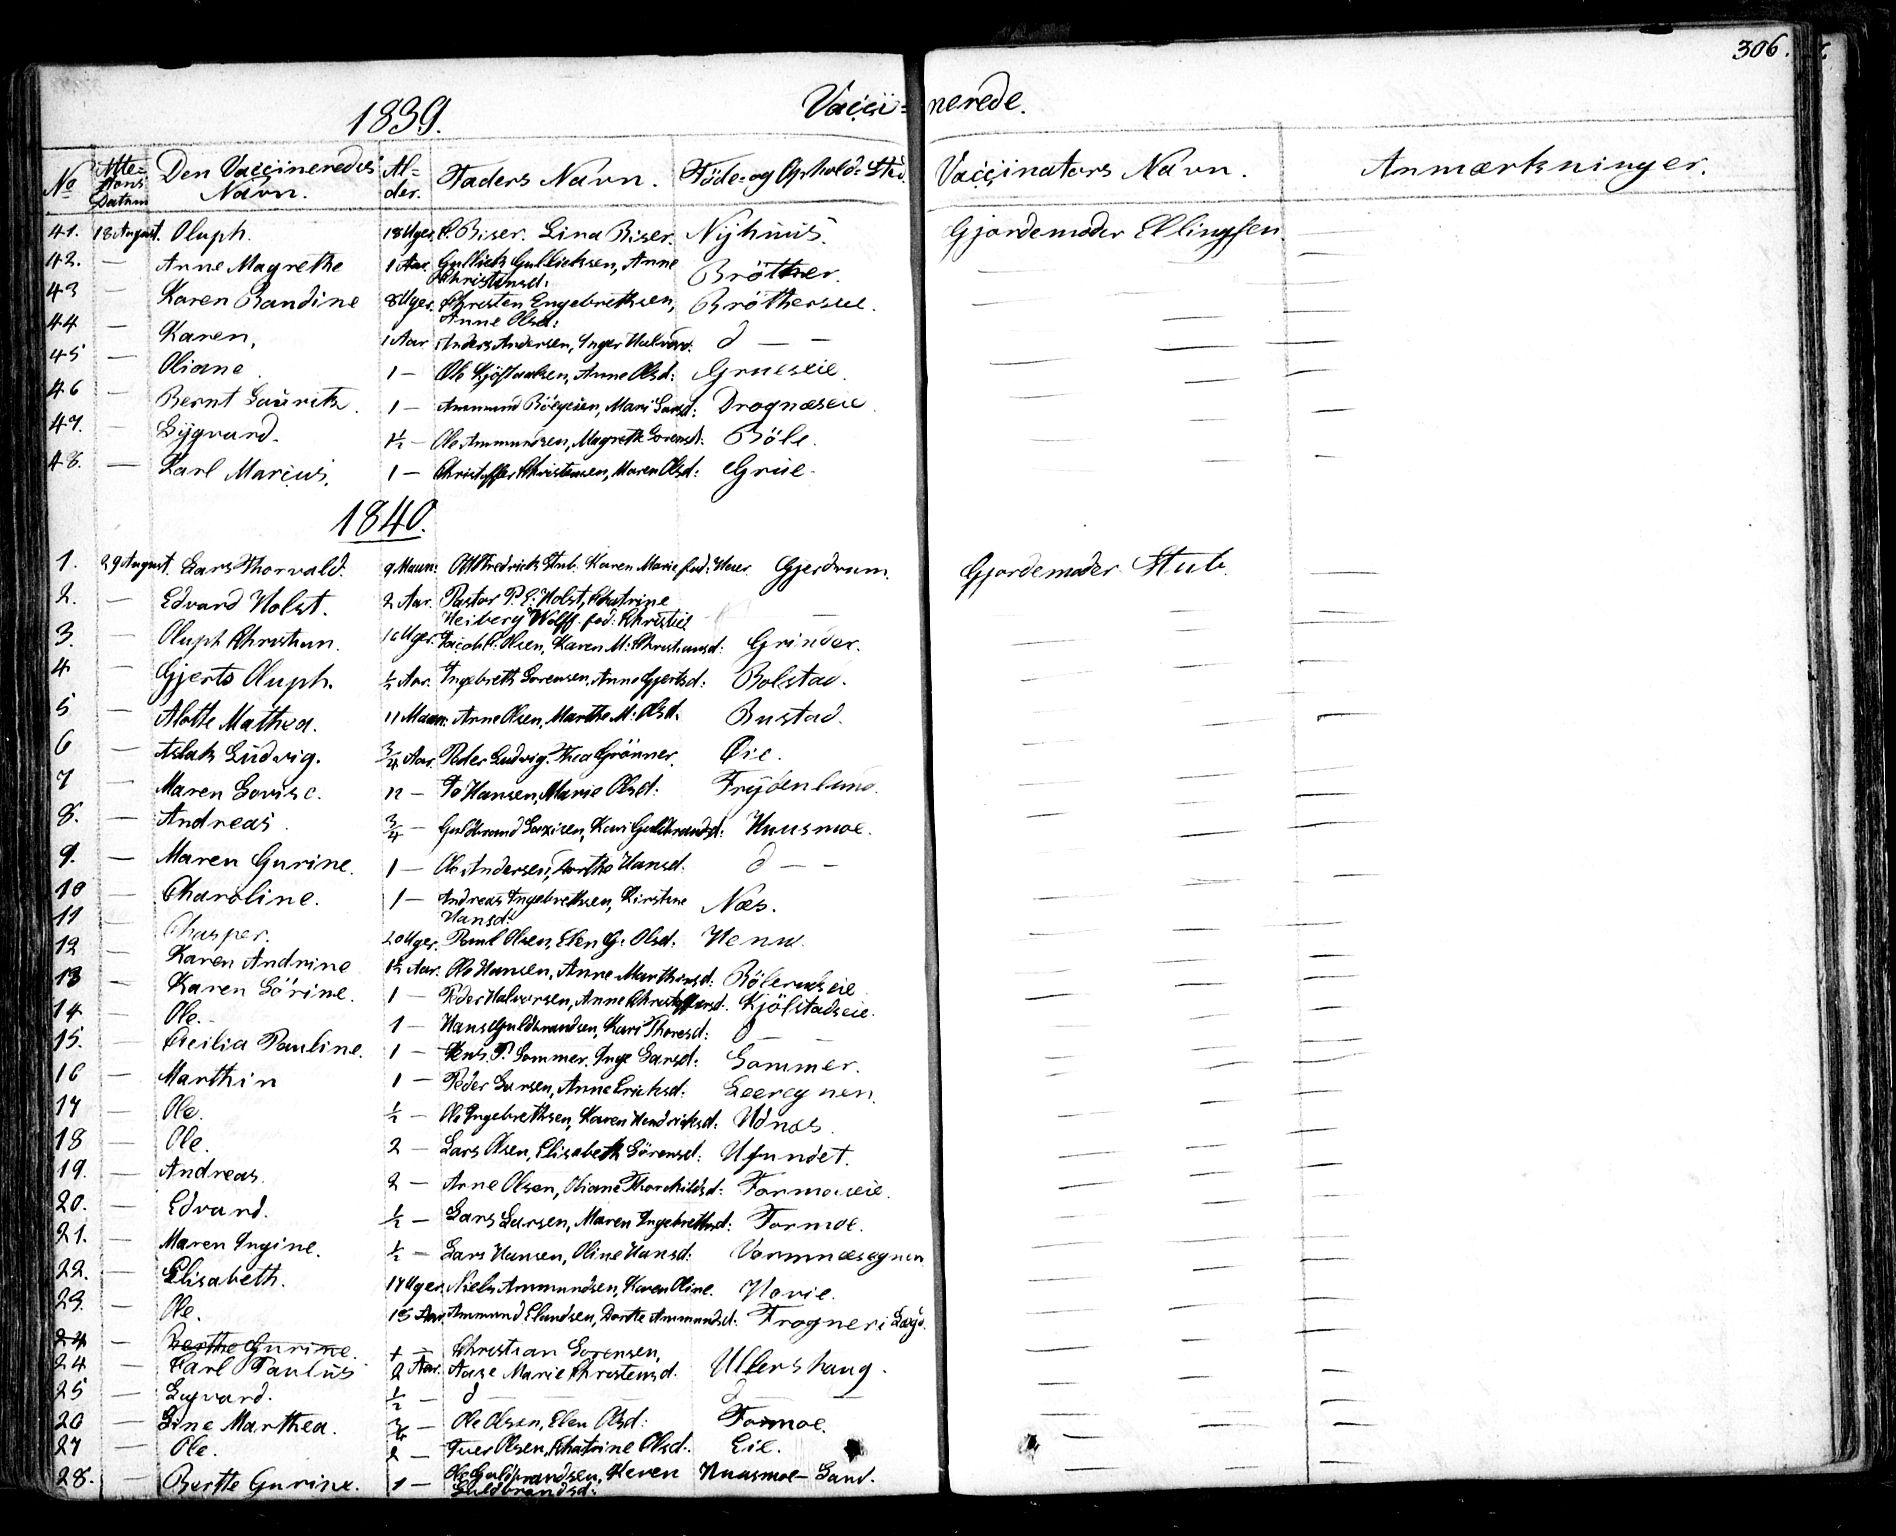 306.
1839. Vacci= nerede.
No Atte=stions Datum Den Vaccineredes Navn. Al=der. Faders Navn. Föde= og Ophold: Sted. Vaccinators Navn. Anmærkninger.
41. 18 August. Oluph. 18 Uger. C. Biser. Lina Biser. Nyhuus. Gjordemoder Ellingsen. —
42. — Anne Magrethe 1 Aar Gullich Gullichsen, Anne Christensd: Bröther. — — —
43 — Karen Randine 8 Uger. Christen Engebrethsen, Anne Olsd: Brötherseie. — — —
44 — Karen, 1 Aar Anders Andersen, Inger Halvord. d — — — — —
45 — Oliane. 1 — Ole Kjöstaelsen, Anne Olsd: Grueseie. — — —
46 — Bernt Lauritz. 1 — Ammund Börgesen, Mari Larsd: Drognæseie. — — —
47. — Sygvard. 1½ — Ole Ammundsen, Magrethe Sorensd. Böle. — — —
48. — Karl Marcius. 1 — Christoffer Christensen, Maren Olsd: Grue. — — —
1840.
1. 29 August. Lars Thorvald. 9 Maan: Ott Fredrich Stub. Karen Marie fød: Heier Gjerdrum. Gjordemoder Stub. —
2. — Edvard Holst. 2 Aar. Pastor P. C. Holst, Chatrine Heiberg Wolff. fød: Christie — — — —
3. — Oluph Christian. 16 Uger. Jacob C. Olsen, Karen M: Christiansd: Grinder. — — —
4. — Gjerts Oluph. ½ Aar. Ingebreth Sorensen, Anne Gjertsd: Bolstad. — — —
5 — Alotte Mathea. 11 Maan: Arne Olsen, Marthe M: Olsd. Bustad. — — —
6 — Aslak Ludvig. ¾ Aar. Peder Ludvig. Thea Grönner. Øie. — — —
7 — Maren Lovise. 12 — To Hansen, Marie Olsd: Frydenlund. — — —
8. — Andreas. ¾ — Guldbrand Larsen, Kari Guldbrandsd: Huusmoe. — — —
9. — Maren Gurine. 1 — Ole Andersen, Dorthe Hansd. d — — — — —
10 — Charoline. 1 — Andreas Ingebrethsen, Kirstine Hansd: Næs. — — —
11 — Chasper. 20 Uger. Poul Olsen, Elen G: Olsd: Henu. — — —
12 — Karen Andrine 1½ Aar. Ole Hansen, Anne Marthinsd: Bölerudseie — — —
13 — Karen Sörine. 1 — Peder Halvorsen, Anne Christoffersd. Kjölstadseie. — — —
14. — Ole. 1 — Hans Guldbrandsen, Kari Thoresd: d — — —
15. — Cecilia Pauline. 1 — Jens. P. Sommer. Inge Larsd: Sommer. — — —
16 — Marthin 1 — Peder Larsen, Anne Ericksd: Leeregnen. — — —
17 — Ole. ½ — Ole Ingebrethsen, Karen Hendricksd: Udnæs. — — —
18 — Ole. 2 — Lars Olsen, Elisabeth Sörensd: Ufundet. — — —
19. — Andreas. 2 — Arne Olsen, Oliane Thorchildsd: Formoeseie. — — —
20. — Edvard. ½ — Lars Larsen, Maren Ingebrethsd: Formoe. — — —
21. — Maren Ingine. ½ — Lars Hansen, Oline Hansd: Vormnæsegnen — — —
22. — Elisabeth. 17 Uger. Niels Ammundsen, Karen Oline. Hovie. — — —
23. — Ole. 15 Aar Ammund Elandsen, Dorthe Ammundsd: Frogner i Sørg. — — —
24 — Berthe Gurine. + — Christian Sorensen,
24 — Carl Paulus 2 Aar. Aase Marie Christensd. Ullershaug. — — —
25 — Sygvard. ½ — d — d — — — —
26 — Line Marthea. ¾ — Ole Olsen, Elen Olsd: Formoe. — — —
27 — Ole. 2 — Iver Olsen, Chatrine Olsd. Eie. — — —
28. — Berthe Gurine. 1 — Ole Guldbrandsen, Keren Guldbrandsd: Huusmoe Sand. — — —